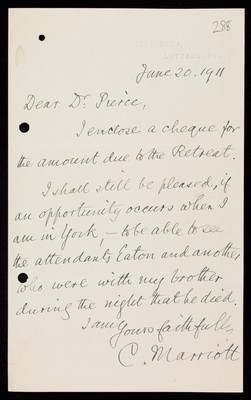 288
June 20. 1911
Dear Dr. Pierce,
I enclose a cheque for
the amount due to the Retreat.
I shall still be pleased, if
an opportunity occurs when I
am in York, – to be able to see
the attendants Eaton and another
who were with my brother
during the night that he died.
I am
Yours faithfully
C. Marriott